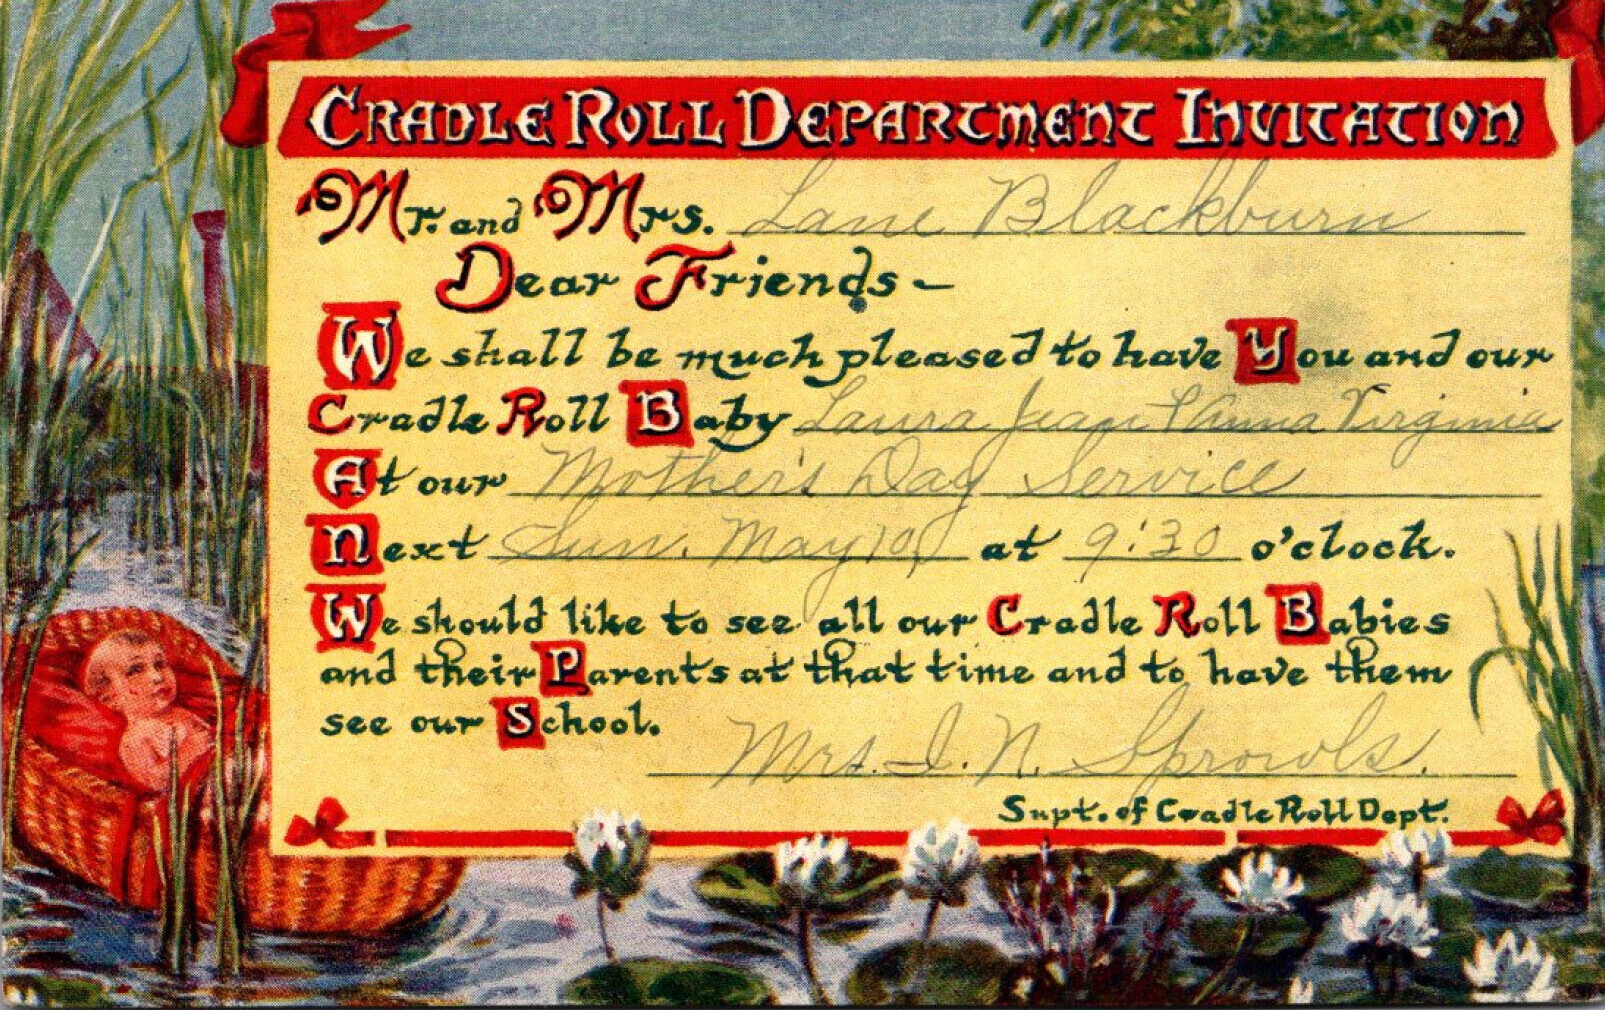 CRADLE ROLL DEPARTMENT INVITATION
Mr. and Mrs. Lane Blackburn
Dear Friends -
We shall be much pleased to have You and our
Cradle Roll Baby Laura Jean & Anna Virginia
At our Mother's Day Service
Next Sun. May 10, at 9:30 o'clock.
We should like to see all our Cradle Roll Babies
and their Parents at that time and to have them
see our School.
Mrs. I. N. Sprowls.
Supt. of Cradle Roll Dept.